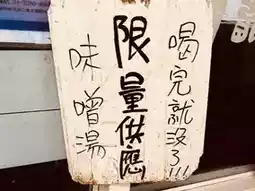 喝完就沒了!!!
限量供應
味噌湯